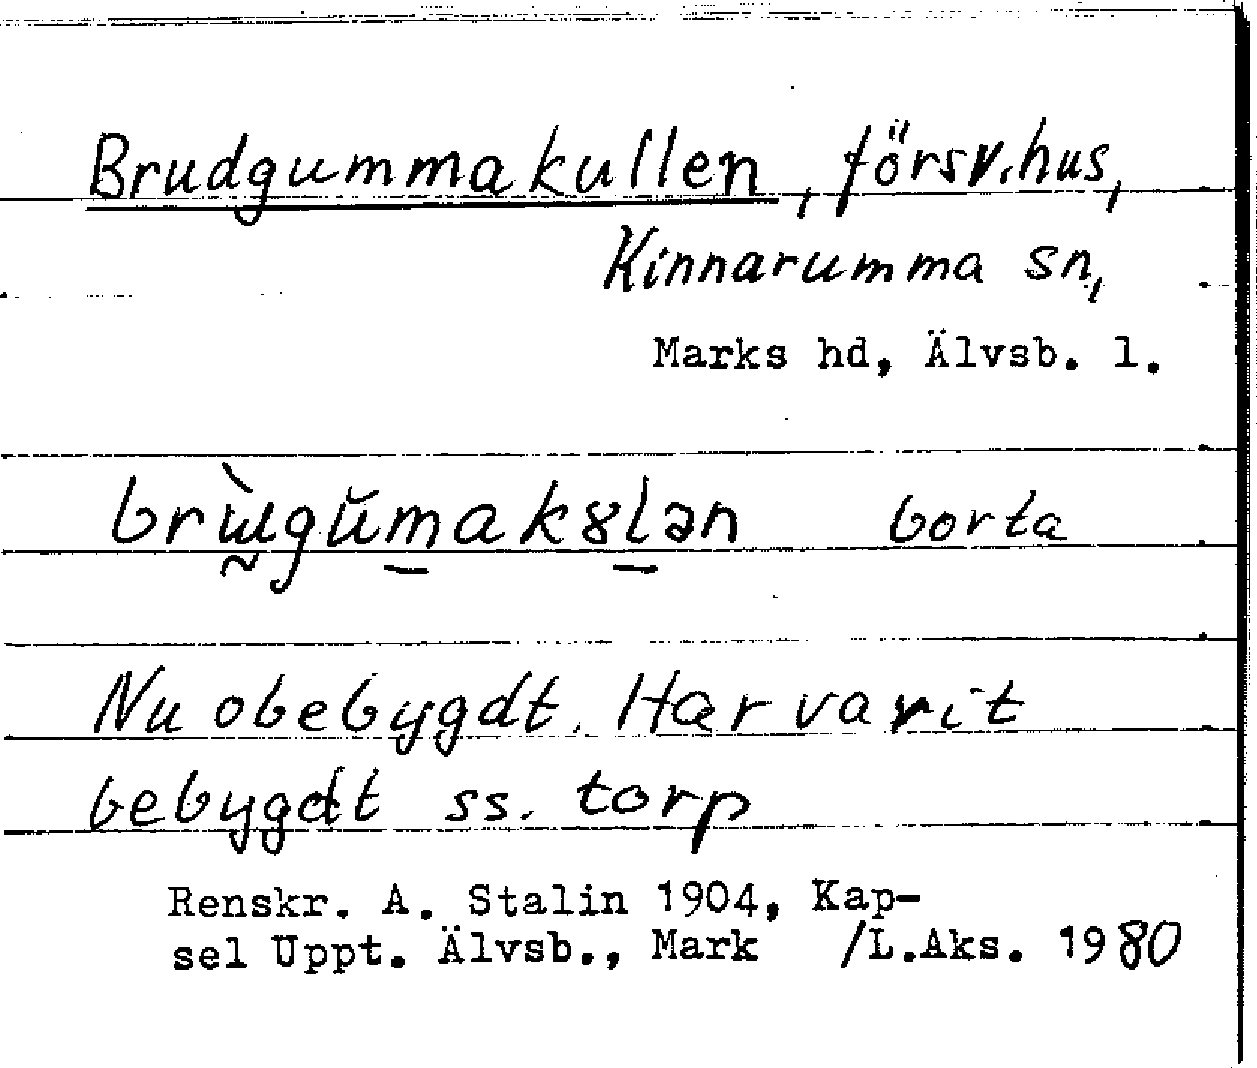 Brudgummakullen, försv.hus,
Kinnarumma sn,
Marks hd, Älvsb. l.
brɯ̰̀gŭm̲ak8l̲ən borta
Nu obebygdt. Har varit
bebygdt ss. torp
Renskr. A. Stalin 1904, Kap-
sel Uppt. Älvsb., Mark /L.Aks. 1980